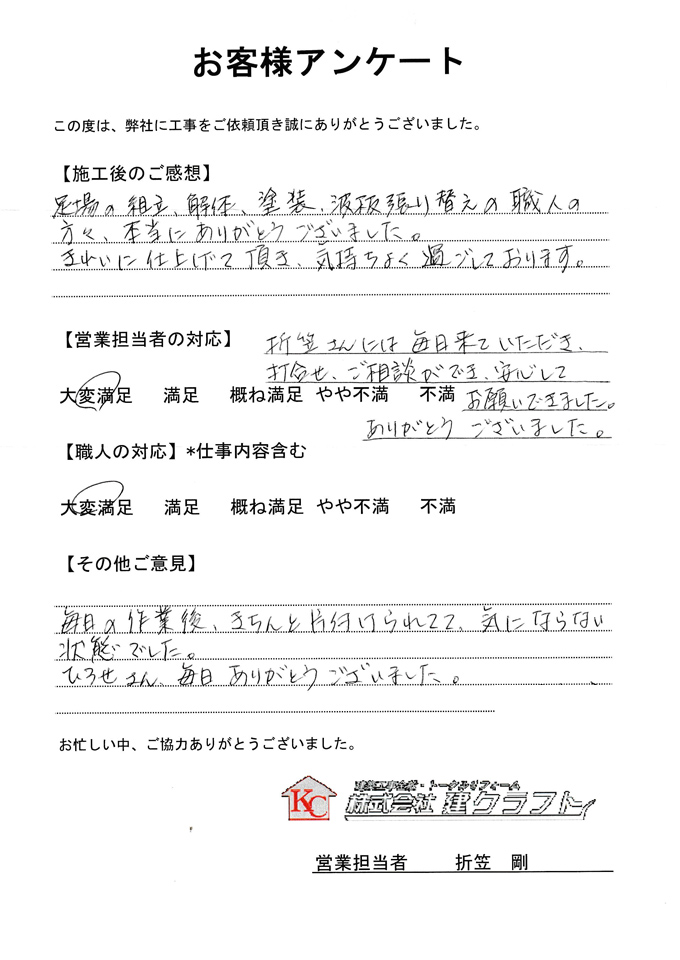 お客様アンケート
この度は、弊社に工事をご依頼頂き誠にありがとうございました。
【施工後のご感想】
足場の組立、解体、塗装、波板張り替えの職人の
方々、本当にありがとうございました。
きれいに仕上げて頂き、気持ちよく過ごしております。
【営業担当者の対応】
折笠さんには毎日来ていただき、
打合せ、ご相談ができ、安心して
大変満足 満足 概ね満足 やや不満 不満
お願いできました。
ありがとうございました。
【職人の対応】*仕事内容含む
大変満足 満足 概ね満足 やや不満 不満
【その他ご意見】
毎日の作業後、きちんと片付けられてて、気にならない
状態でした。
ひろせさん、毎日ありがとうございました。
お忙しい中、ご協力ありがとうございました。
KC
・トータルリフォーム
株式会社 建クラフト
営業担当者 折笠 剛